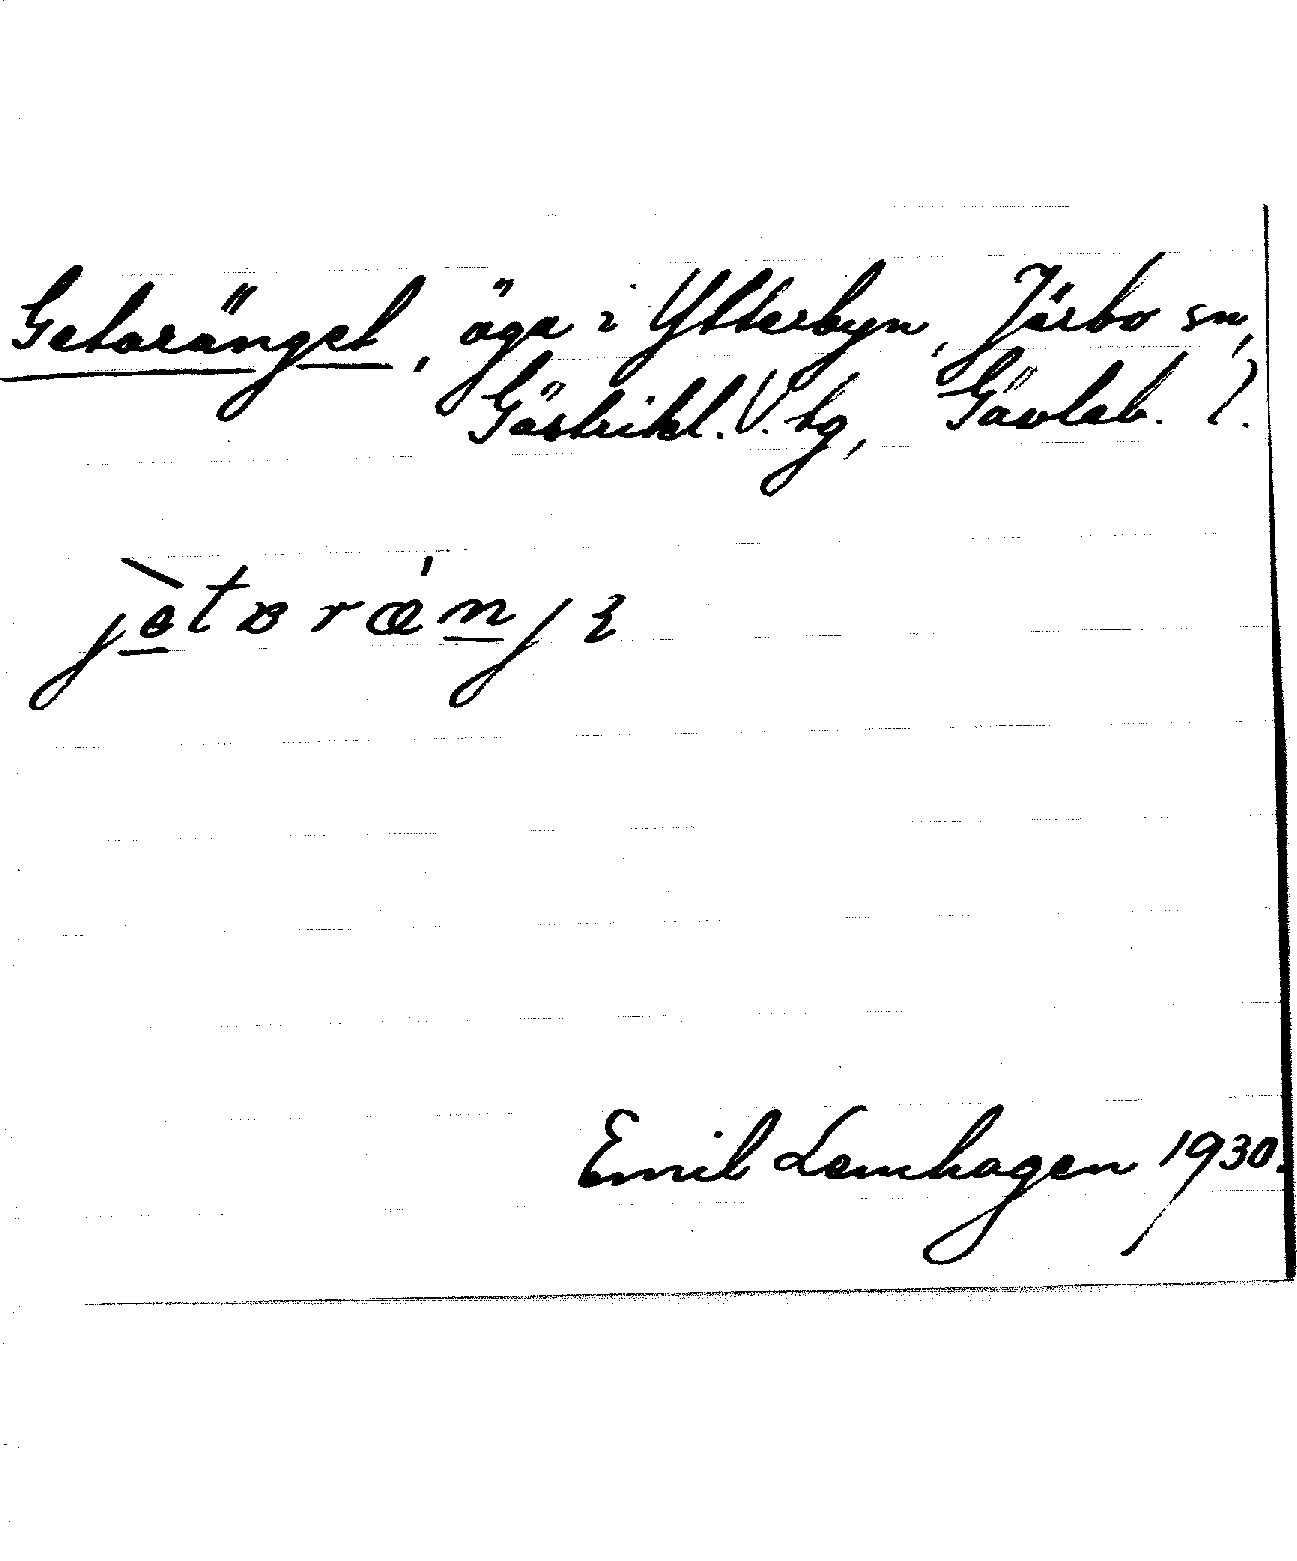 Getaränget, äga i Ytterbyn, Järbo sn,
Gästrikl. V. tg, Gävleb. l.
Emil Lemhagen 1930.